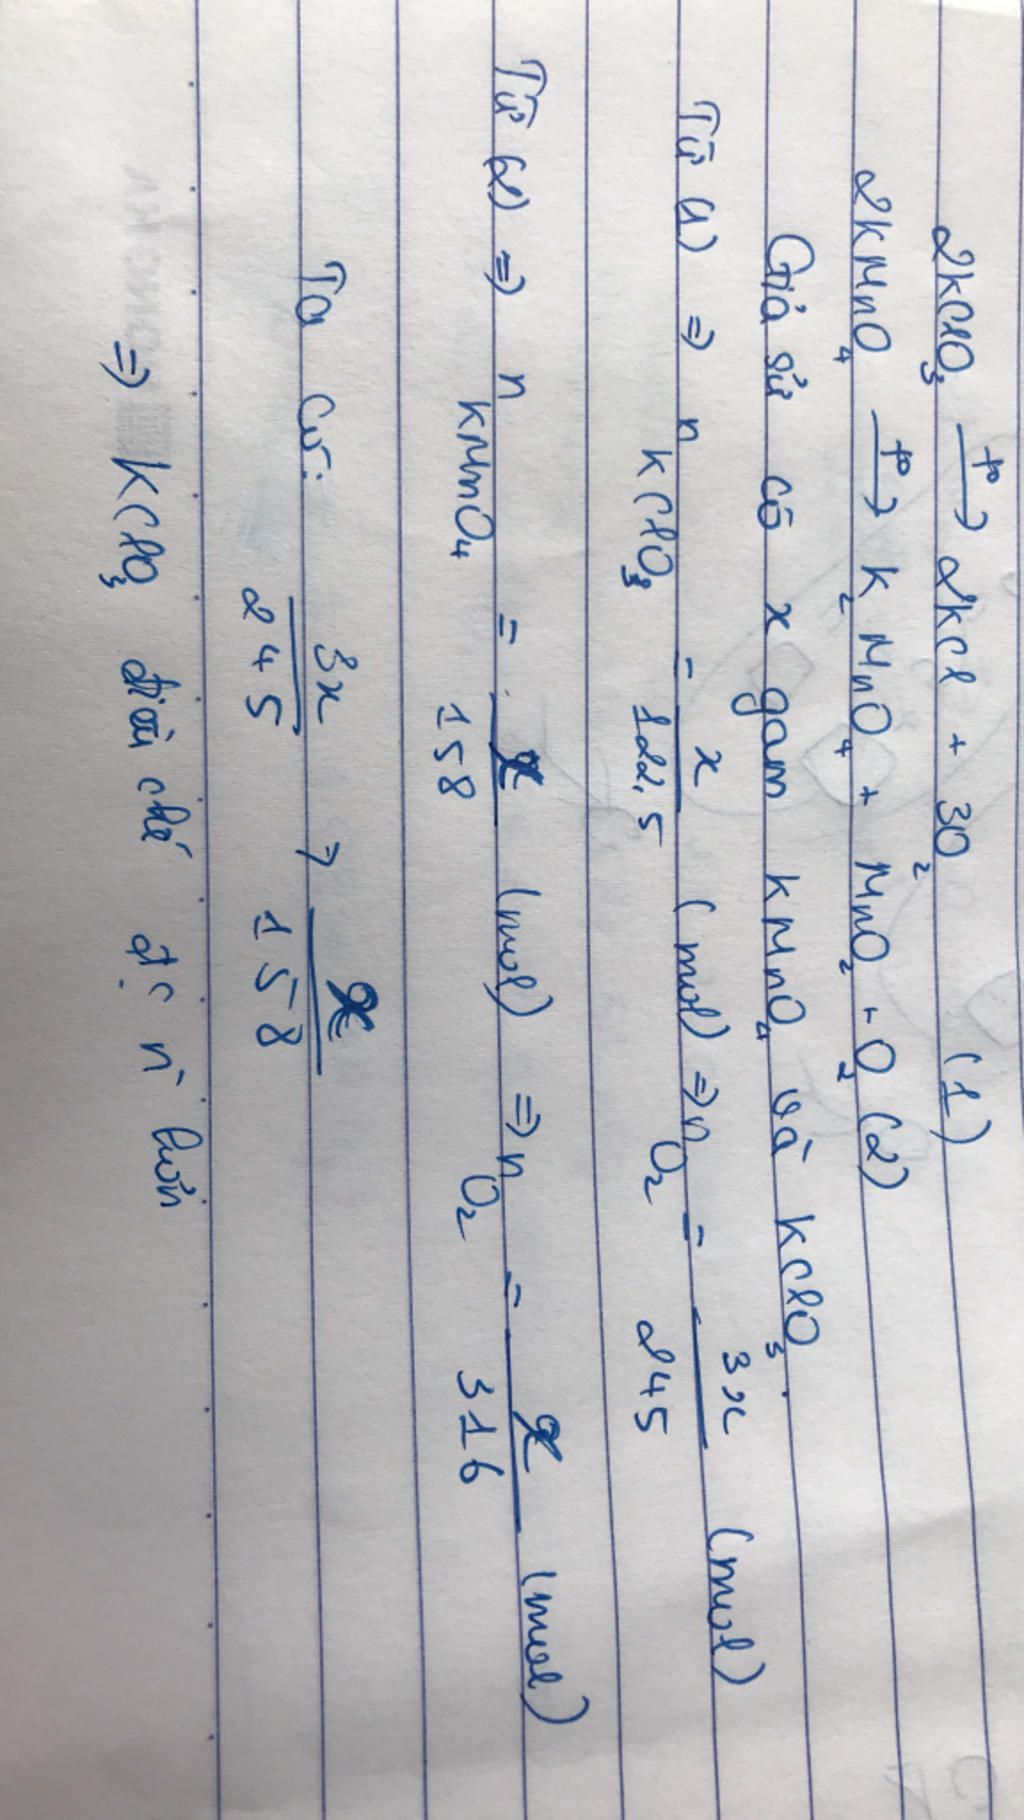 2KClO3 —t°→ 2KCl + 3O2 (1)
2KMnO4 —t°→ K2MnO4 + MnO2 + O2 (2)
Giả sử có x gam KMnO4 và KClO3.
Từ (1) ⇒ nKClO3 = x/122,5 (mol) ⇒ nO2 = 3x/245 (mol)
Từ (2) ⇒ nKMnO4 = x/158 (mol) ⇒ nO2 = x/316 (mol)
Ta có: 3x/245 > x/158
⇒ KClO3 điều chế đc n` hơn